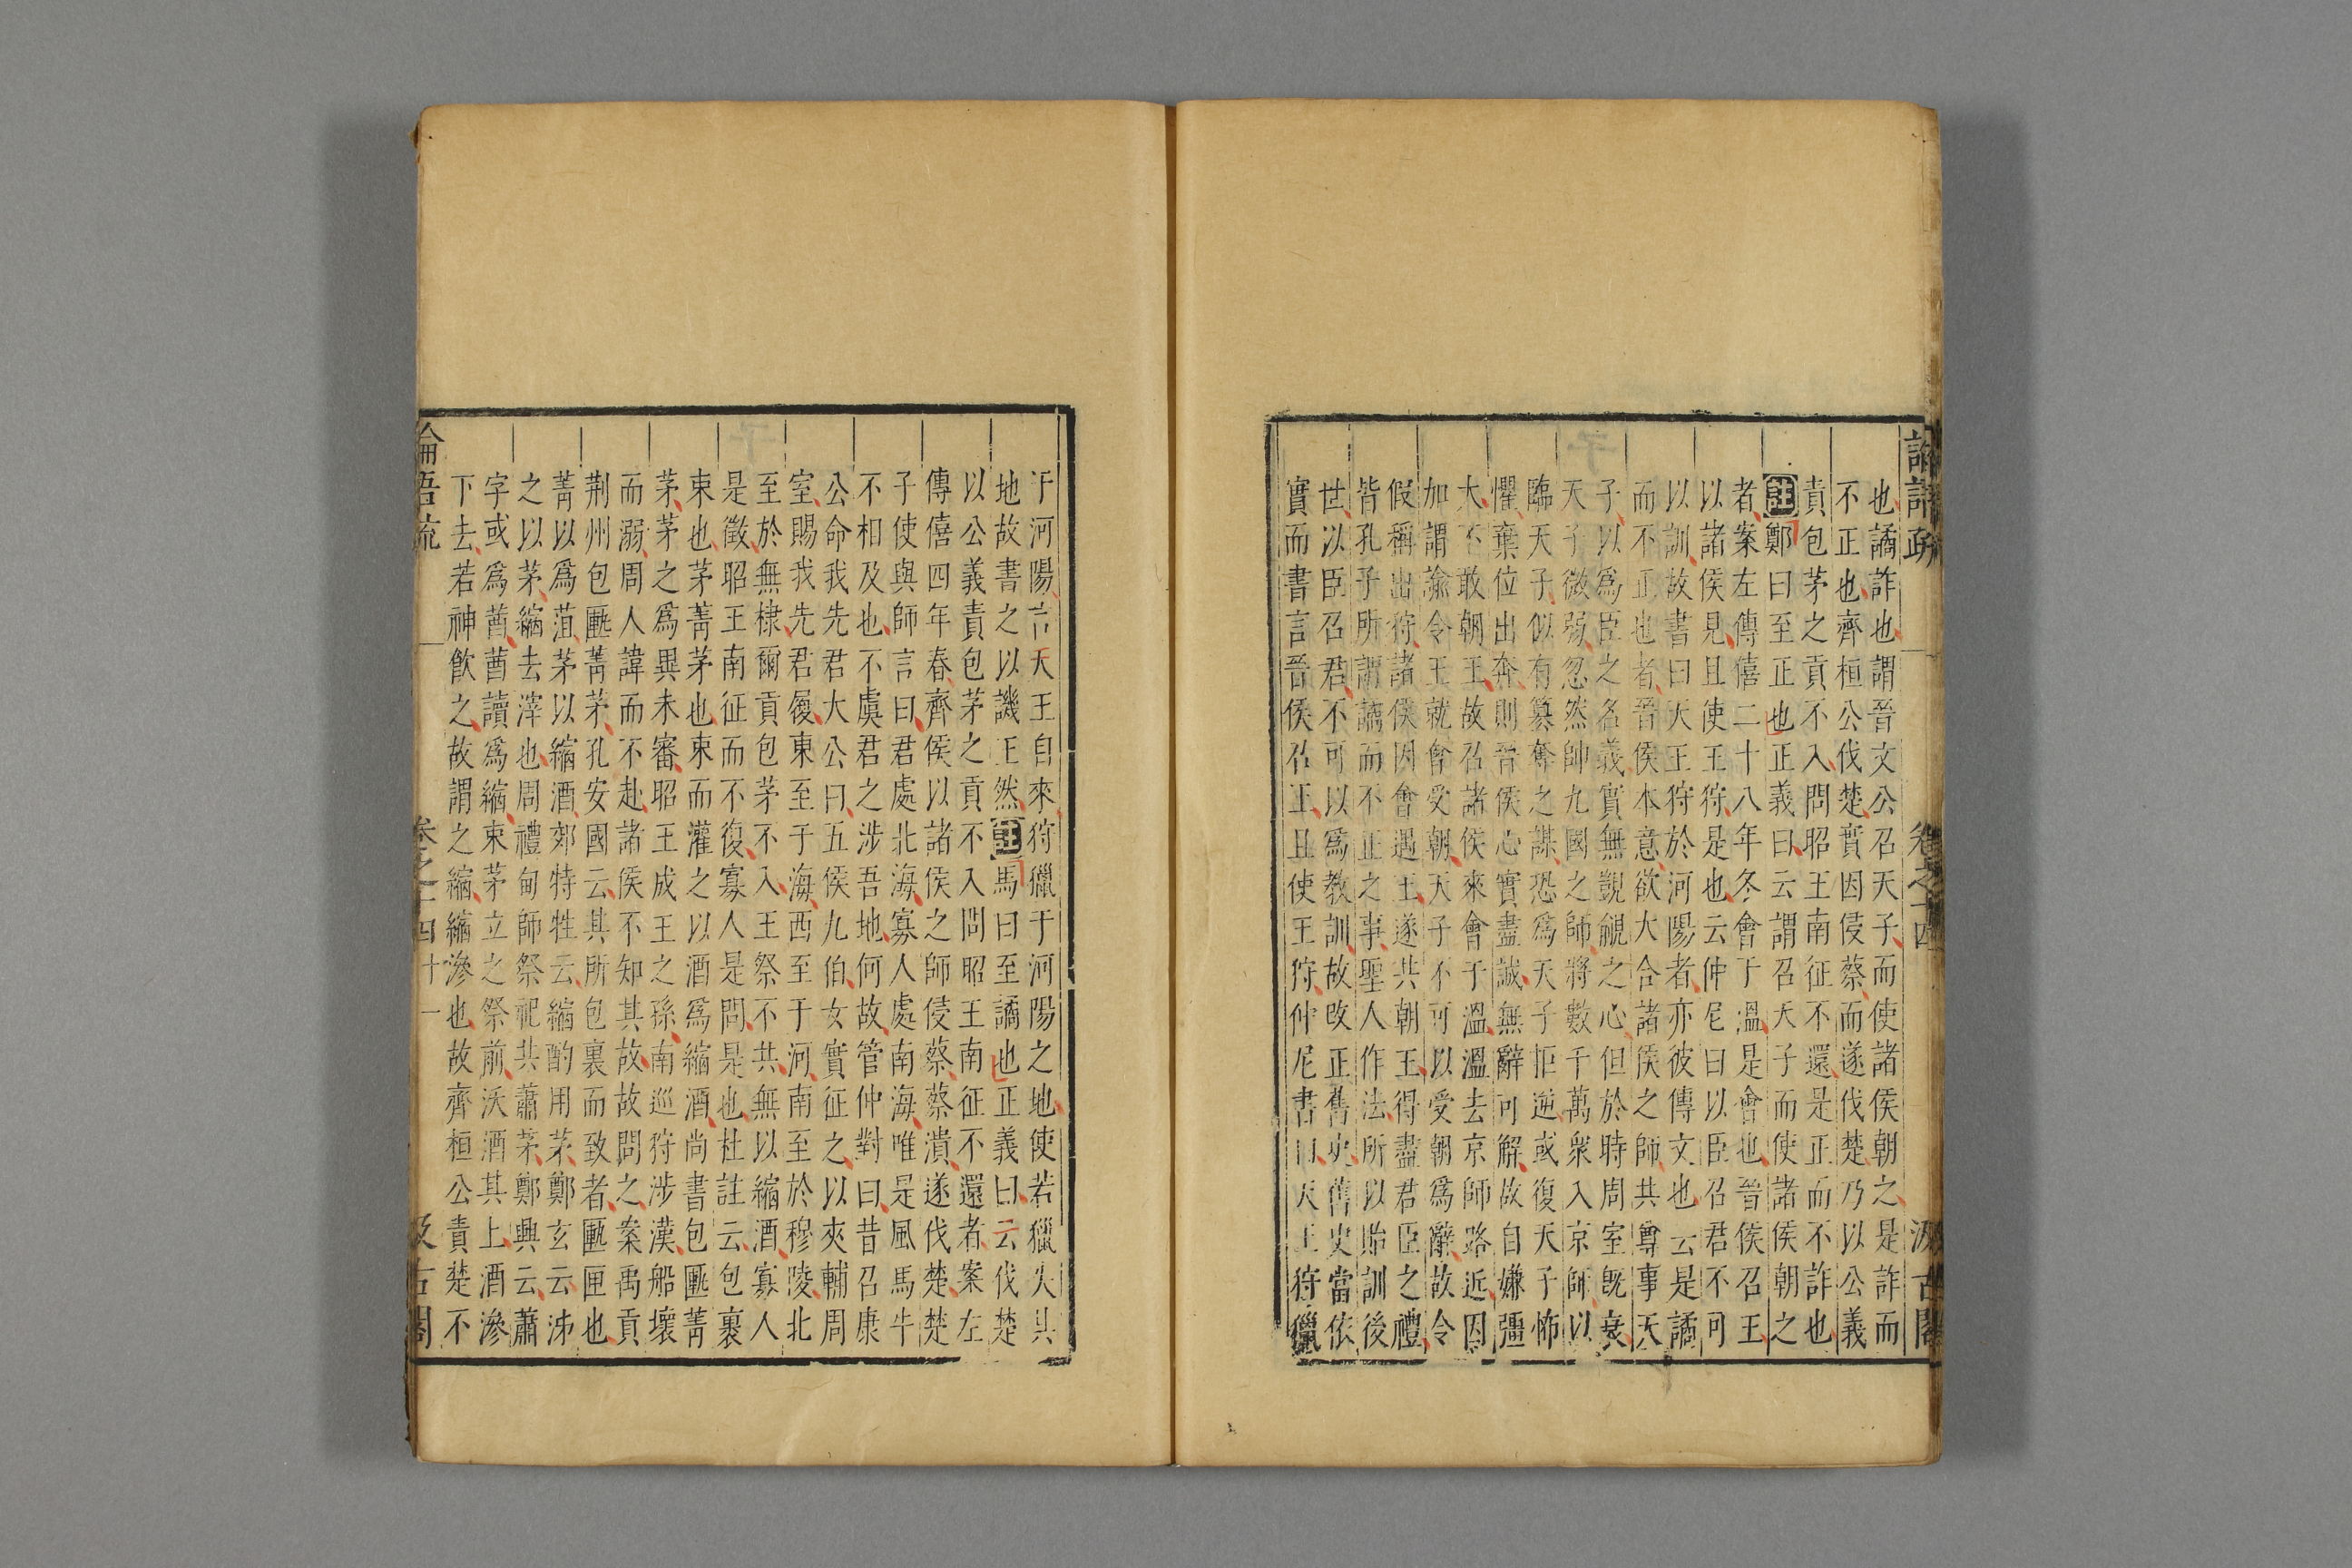 論語疏 卷之十四 汲古閣
也譎詐也謂晉文公召天子而使諸侯朝之是詐而
不正也齊桓公伐楚實因侵蔡而遂伐楚乃以公義
責包茅之貢不入問昭王南征不還是正而不詐也
註鄭曰至正也正義曰云謂召天子而使諸侯朝之
者案左傳僖二十八年冬會于溫是會也晉侯召王
以諸侯見且使王狩是也云仲尼曰以臣召君不可
以訓故書曰天王狩於河陽者亦彼傳文也云是譎
而不正也者晉侯本意欲大合諸侯之師共尊事天
子以爲臣之名義實無覬覦之心但於時周室既衰
天子微弱忽然帥九國之師將數千萬衆入京師以
臨天子似有篡奪之謀恐爲天子拒逆或復天子怖
懼棄位出奔則晉侯心實盡誠無辭可解故自嫌彊
大不敢朝王故召諸侯來會于溫溫去京師路近因
加謂諭令王就會受朝天子不可以受朝爲辭故令
假稱出狩諸侯因會遇王遂共朝王得盡君臣之禮
皆孔子所謂譎而不正之事聖人作法所以貽訓後
世以臣召君不可以爲教訓故改正舊史舊史當依
實而書言晉侯召王且使王狩仲尼書曰天王狩獵
于河陽言天王自來狩獵于河陽之地使若獵失其
地故書之以譏王然註馬曰至譎也正義曰云伐楚
以公義責包茅之貢不入問昭王南征不還者案左
傳僖四年春齊侯以諸侯之師侵蔡蔡潰遂伐楚楚
子使與師言曰君處北海寡人處南海唯是風馬牛
不相及也不虞君之涉吾地何故管仲對曰昔召康
公命我先君大公曰五侯九伯女實征之以夾輔周
室賜我先君履東至于海西至于河南至於穆陵北
至於無棣爾貢包茅不入王祭不共無以縮酒寡人
是徵昭王南征而不復寡人是問是也杜註云包裹
束也茅菁茅也束而灌之以酒爲縮酒尚書包匭菁
茅茅之爲異未審昭王成王之孫南巡狩涉漢船壞
而溺周人諱而不赴諸侯不知其故故問之案禹貢
荆州包匭菁茅孔安國云其所包裹而致者匭匣也
菁以爲菹茅以縮酒郊特牲云縮酌用茅鄭玄云泲
之以茅縮去滓也周禮甸師祭祀共蕭茅鄭興云蕭
字或爲莤莤讀爲縮束茅立之祭前沃酒其上酒滲
下去若神飲之故謂之縮縮滲也故齊桓公責楚不
論語疏 卷之十四 十一 汲古閣